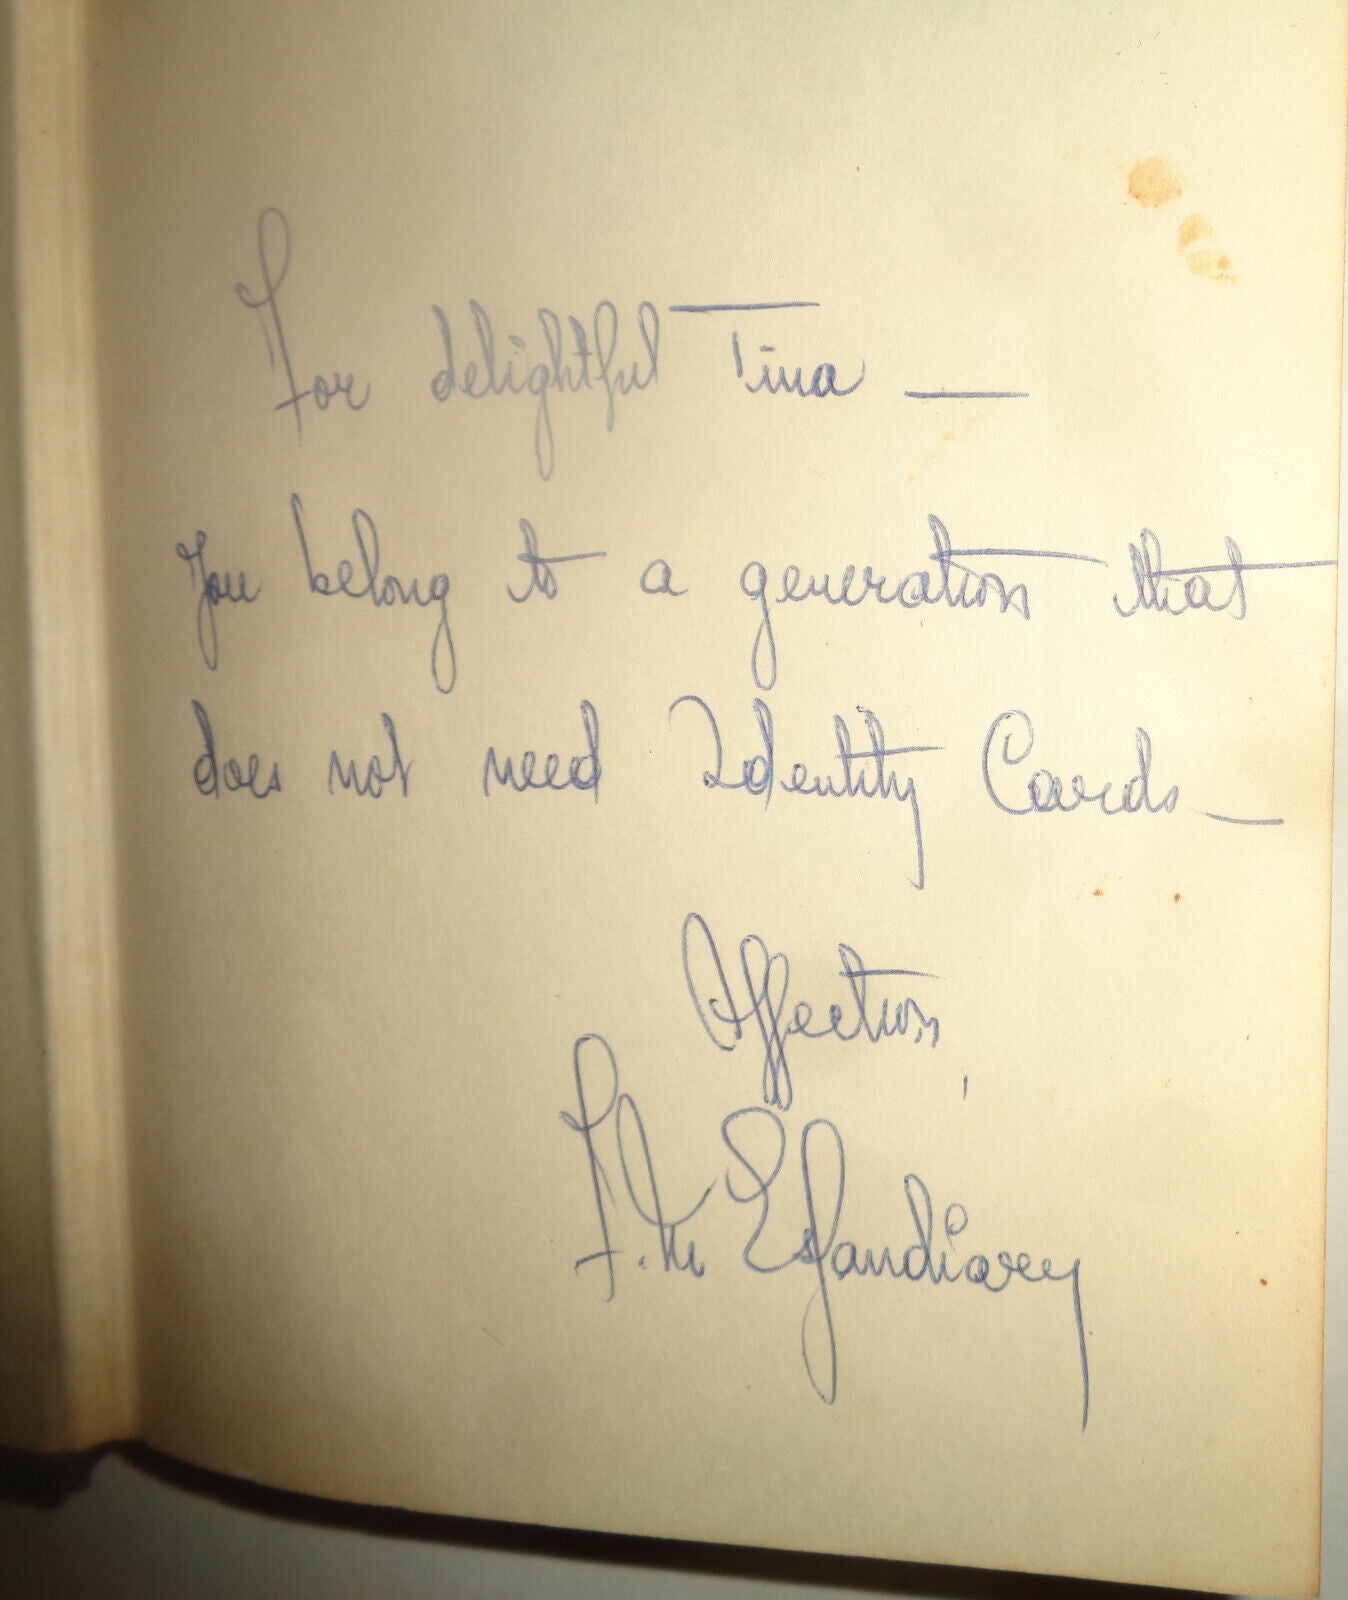 For delightful Tina —
You belong to a generation that
does not need Identity Cards —
Affection,
F.M. Esfandiary